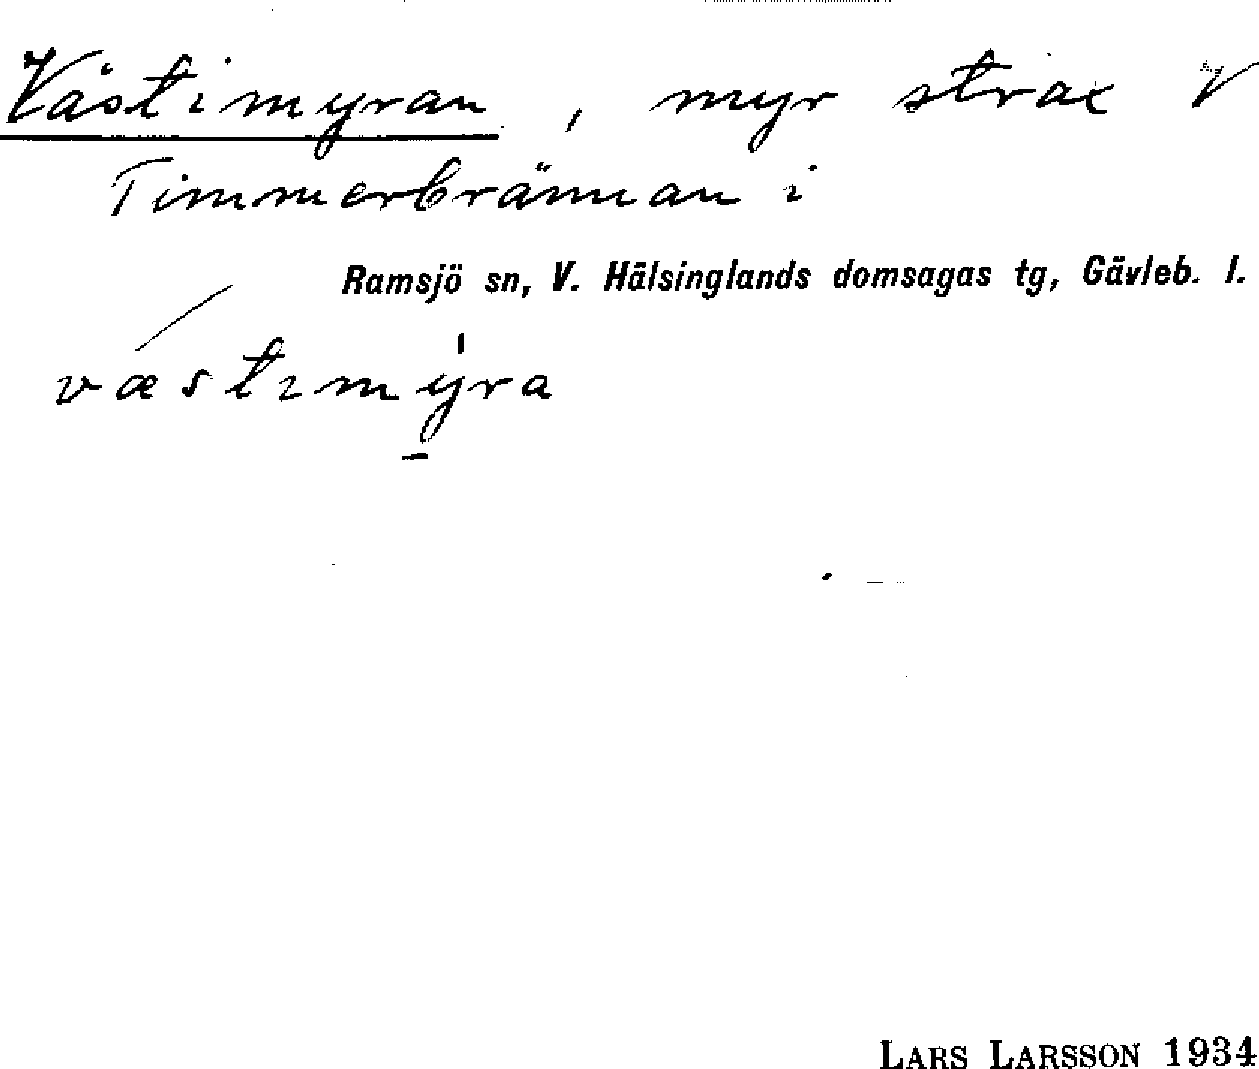 Västimyran, myr strax V
Timmerbrännan i
Ramsjö sn, V. Hälsinglands domsagas tg, Gävleb. l.
væstımýra
LARS LARSSON 1934